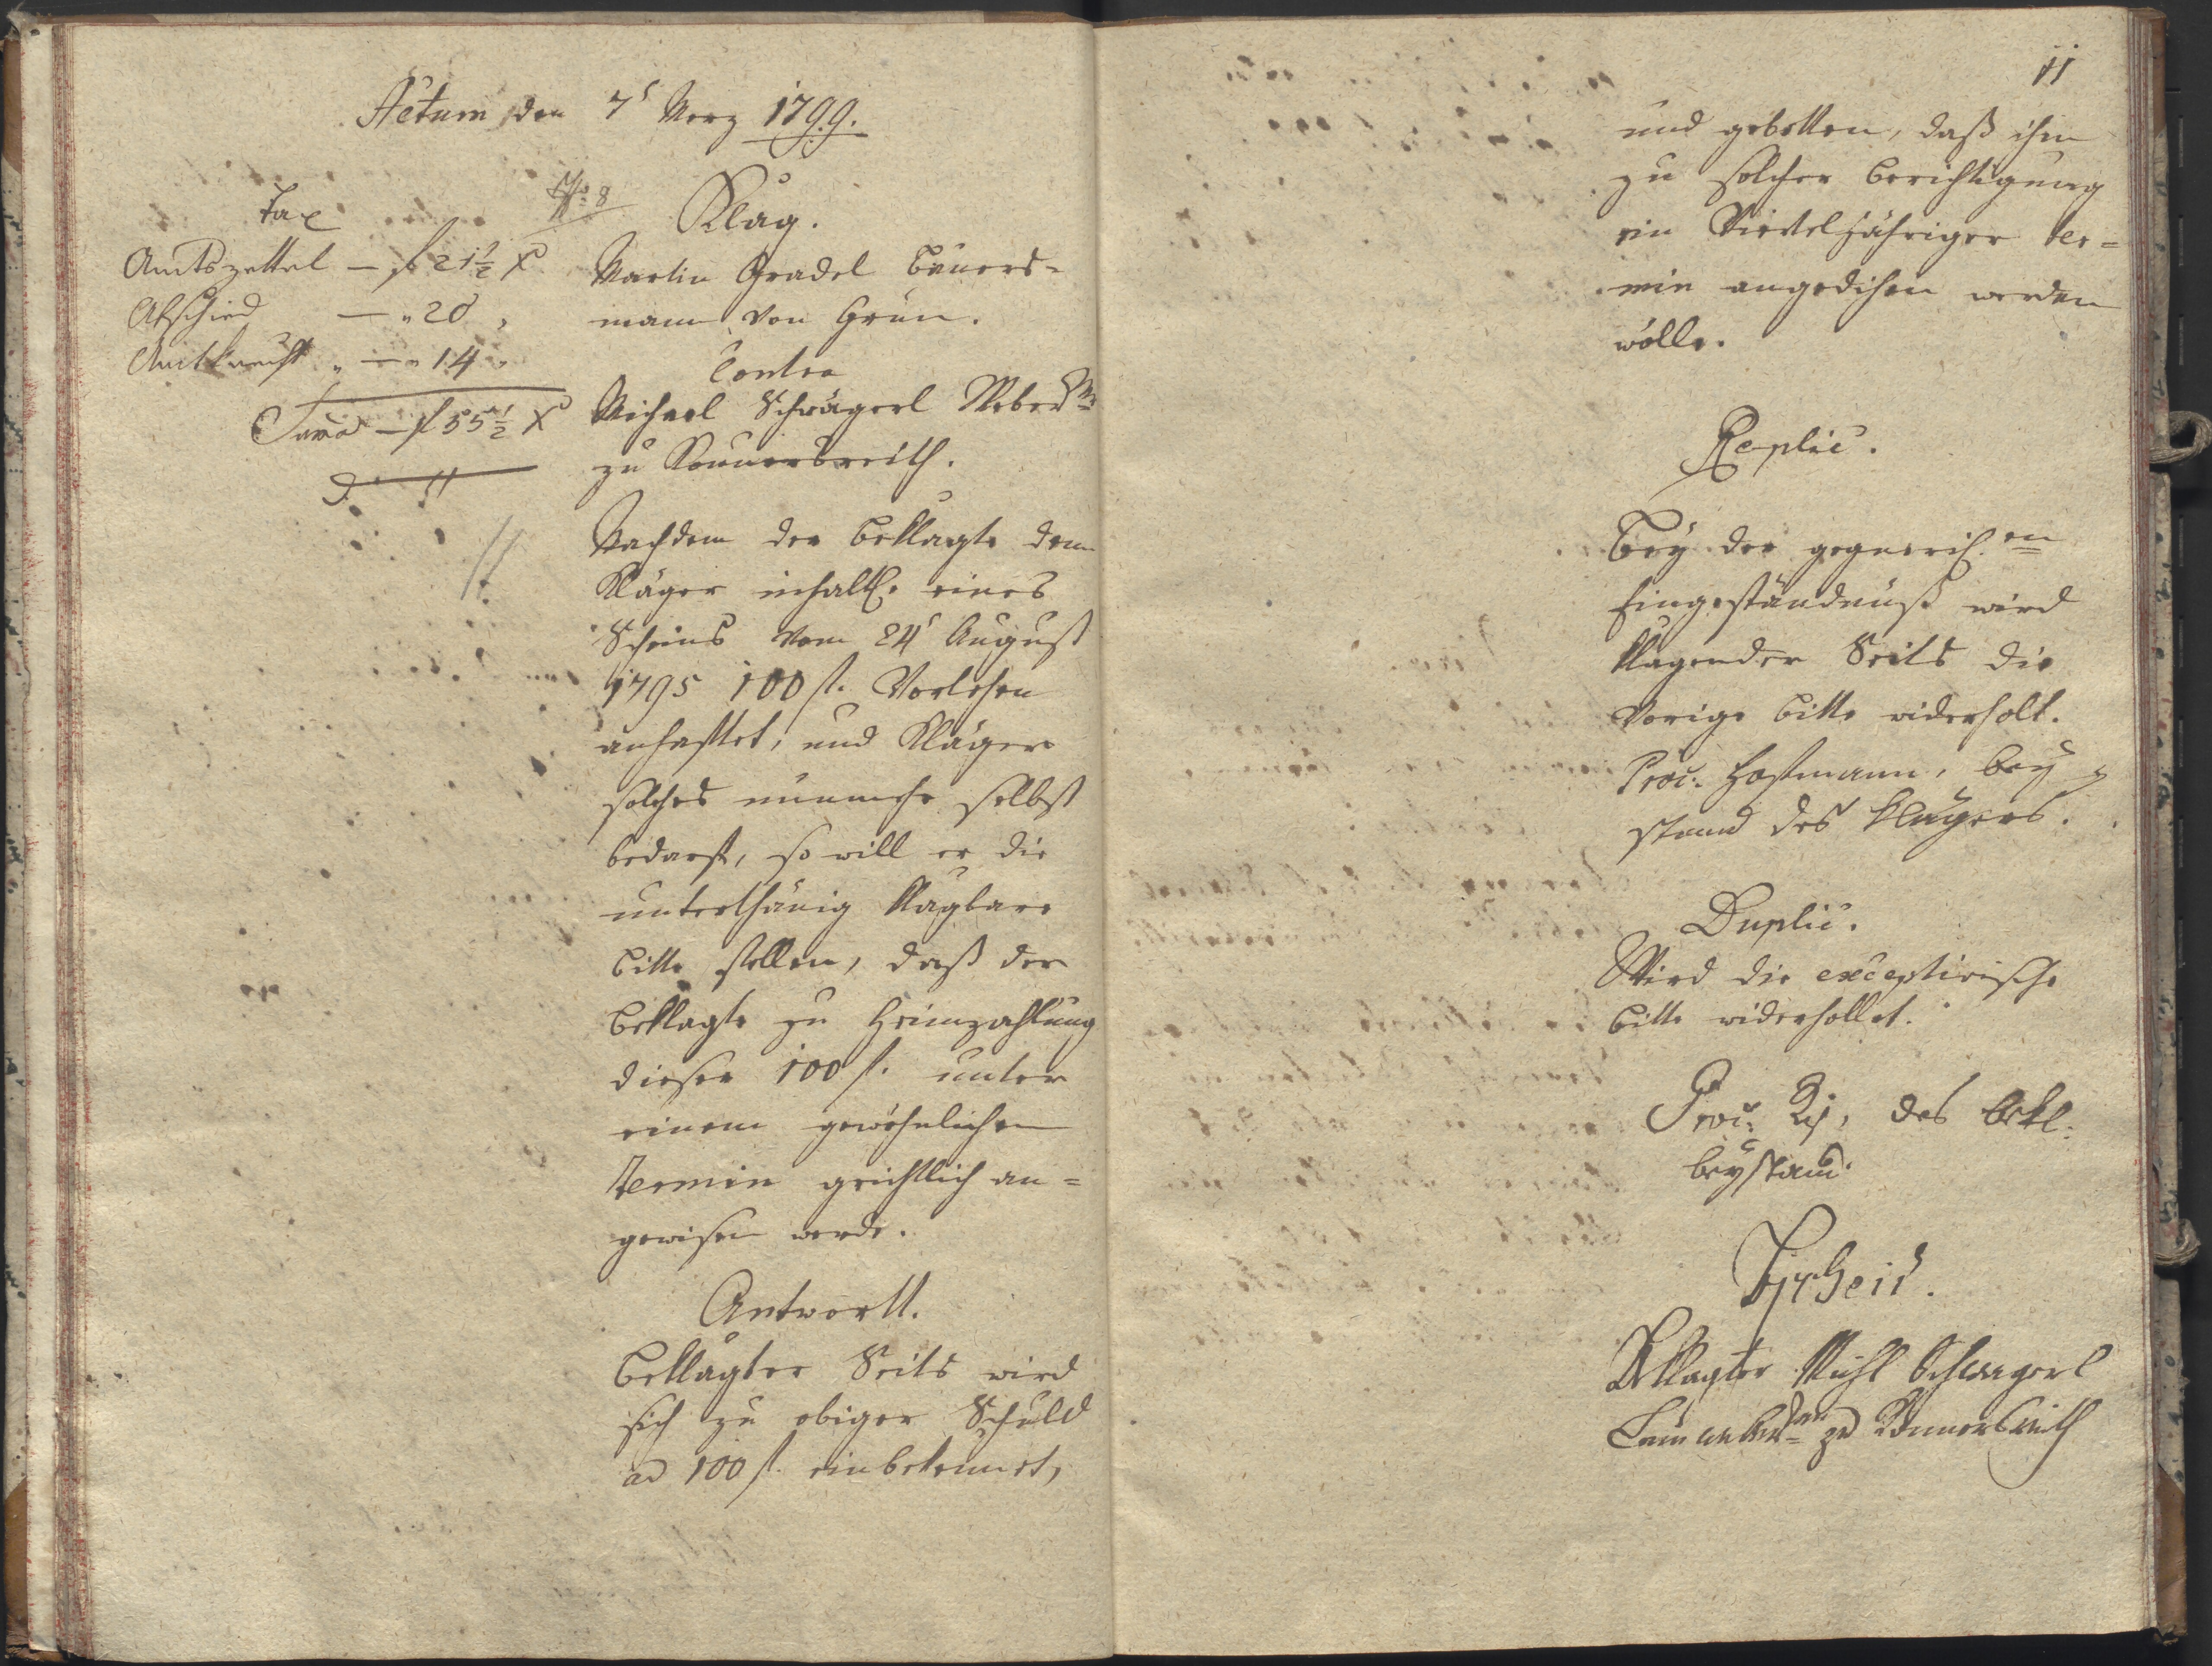 Actum den 7t Merz 1799.
Tax
Amtszettel — f 21½ x
Abschied — „ 20 „
Amtknecht „ — „ 14 „
Sum̄a — f 55½ x
No. 8
Klag.
Martin Gradel Bauers-
mann von Grün.
Contra
Michael Schrägerl Weber
zu Konnersreith.
Nachdem der Beklagte dem
Kläger inhaltl. eines
Scheins vom 24t August
1795 100 f. Vorlehen
anhafftet, und Kläger
solches nunmehr selbst
bedarf, so will er die
unterthänig klagbare
Bitte stellen, daß der
Beklagte zu Heimzahlung
dieser 100 f. unter
einem gewöhnlichen
Termin grichtlich an-
gewisen werde.
Antwortt.
Beklagter Seits wird
sich zu obiger Schuld
ad 100 f. einbekennet,
11
und gebetten, daß ihm
zu solcher Berichtigung
ein Viertljähriger Ter-
min angedihen werden
wolle.
Replic.
Bey der gegnerisch.en
Eingeständnuß wird
klagender Seits die
vorige Bitte widerholt.
Proc: Hofmann, bey-
stand des Klägers.
Duplic.
Wird die exceptivische
Bitte widerhollet.
Proc: des bekl:
beystand.
Bscheid.
Beklagter Michl Schragerl
Leinweber zu Konnersreith